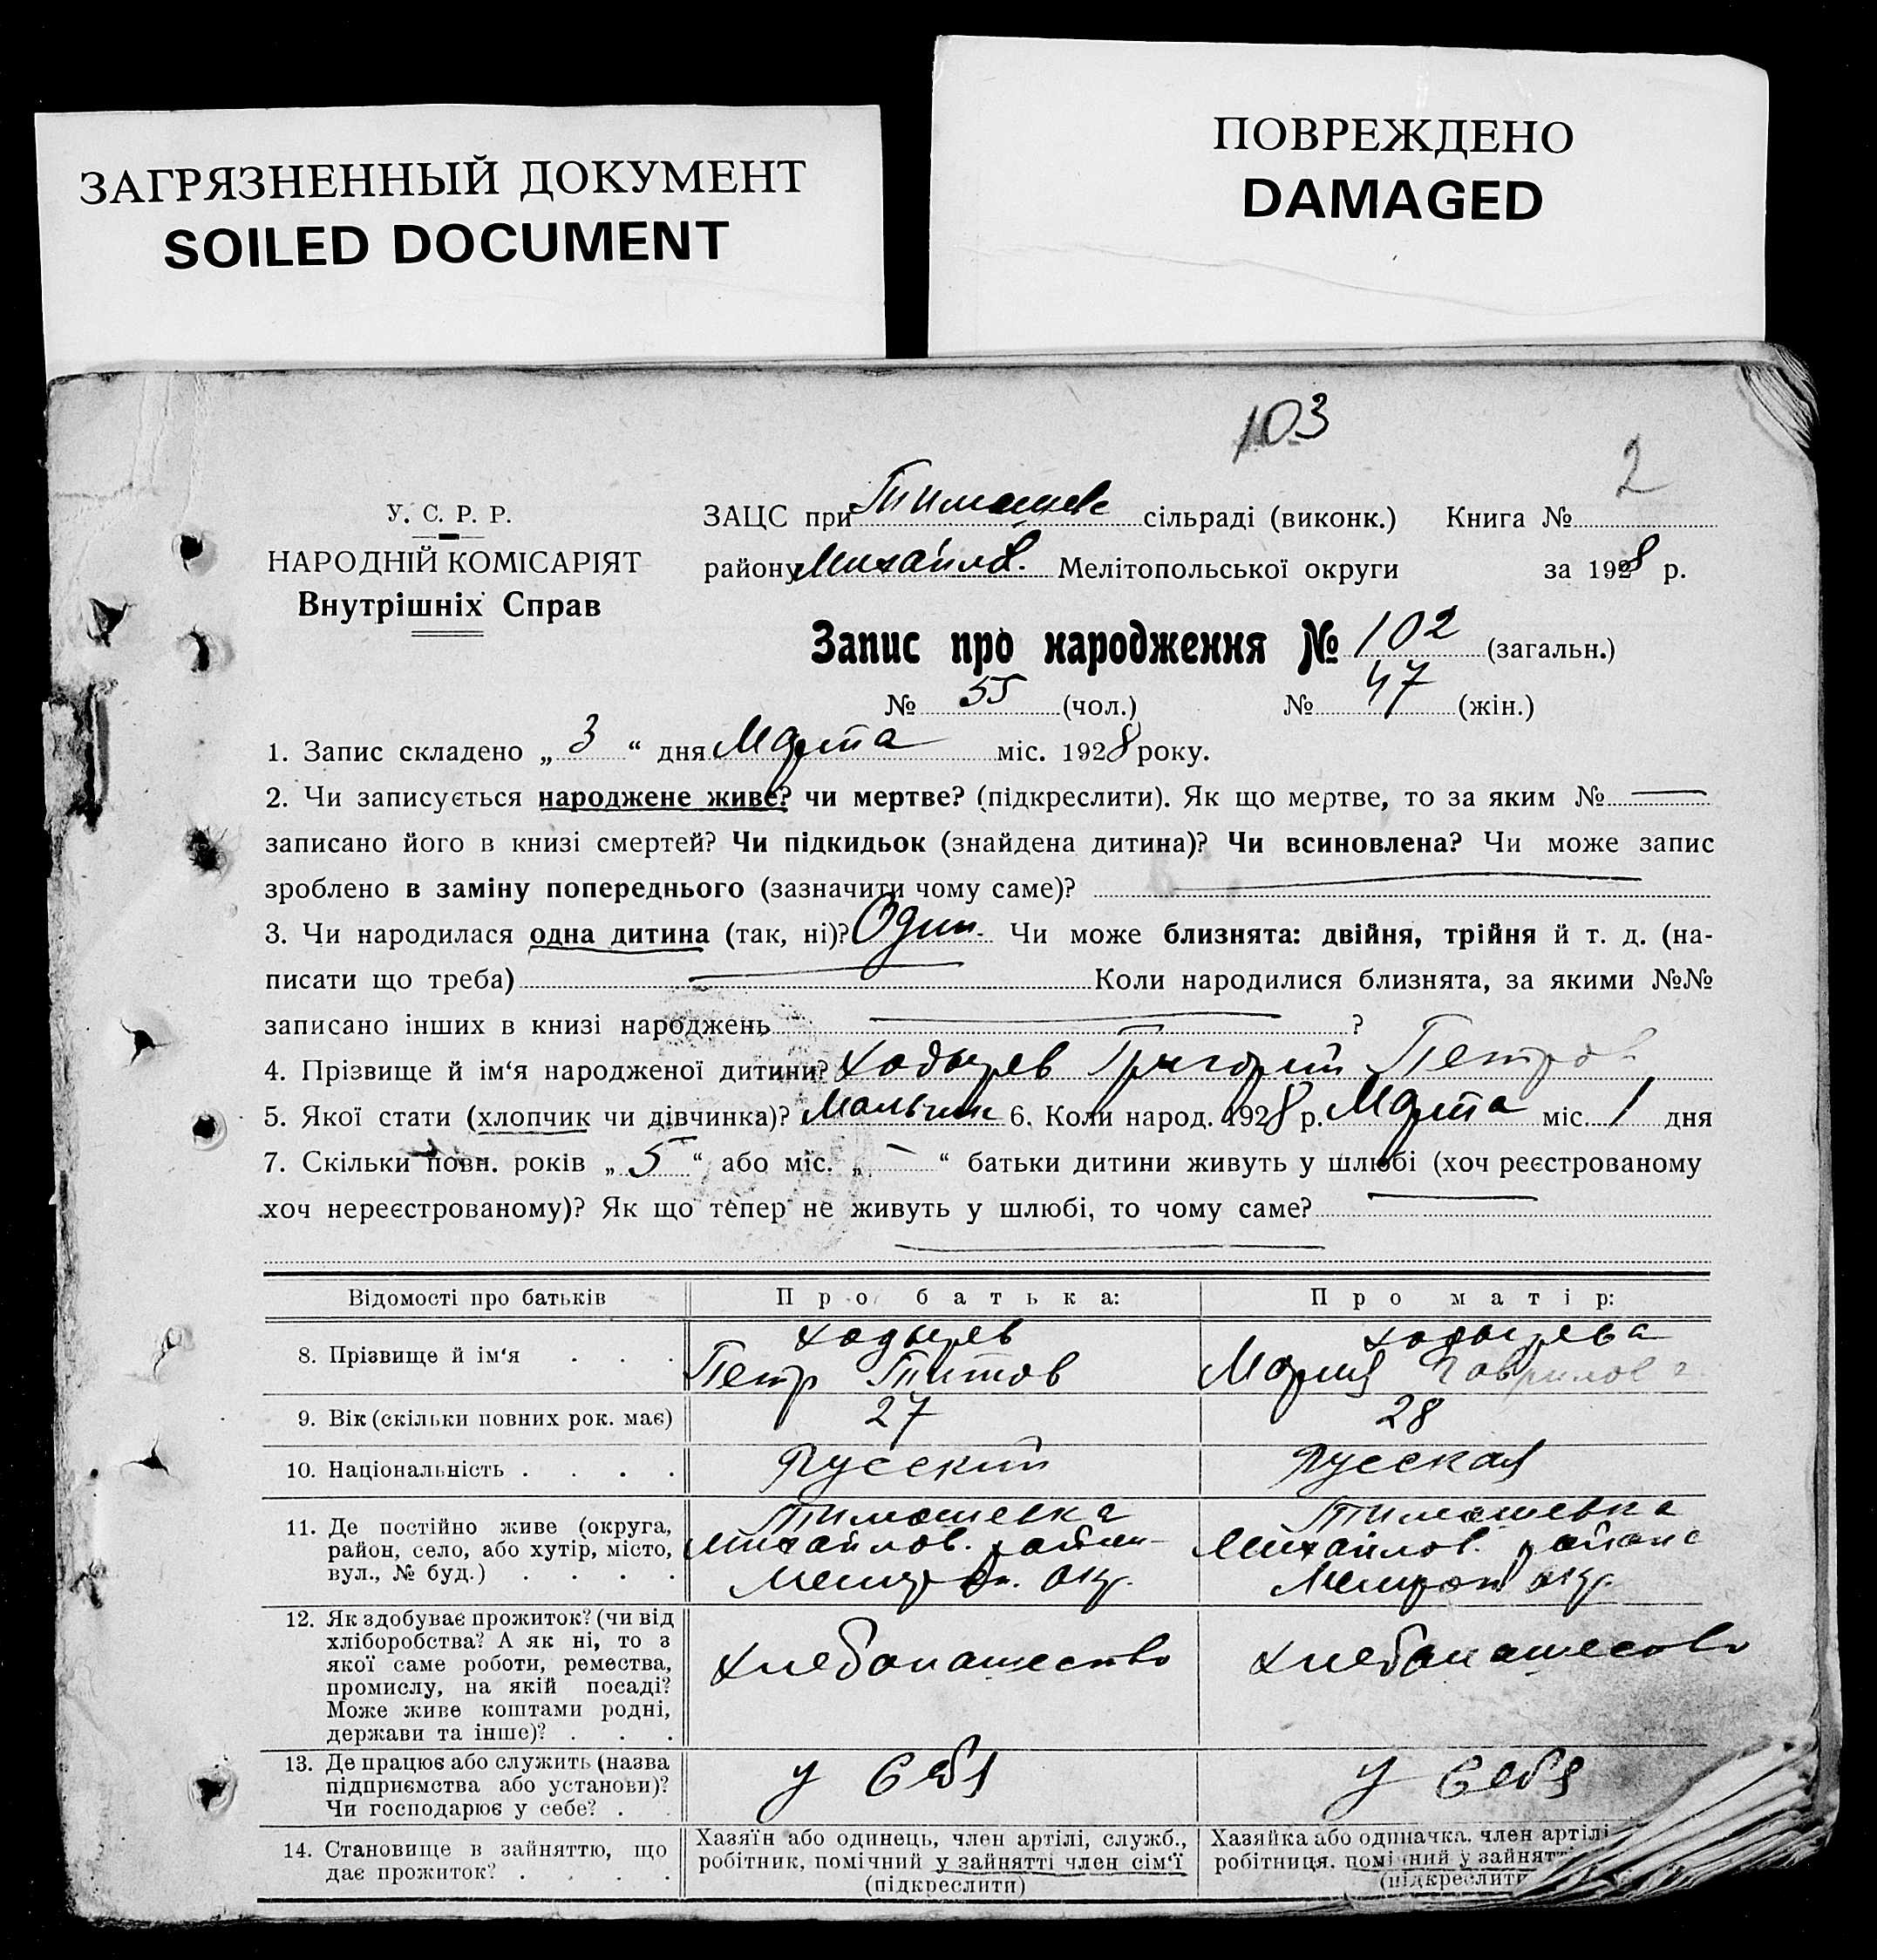 ЗАГРЯЗНЕННЫЙ ДОКУМЕНТ
SOILED DOCUMENT
ПОВРЕЖДЕНО
DAMAGED
103
2
У. С. Р. Р.
НАРОДНІЙ КОМІСАРІЯТ
Внутрішніх Справ
ЗАЦС при Тимошевс сільраді (виконк.) Книга №
району Михайлов. Мелітопольської округи за 1928 р.
Запис про народження № 102 (загальн.)
№ 55 (чол.) № 47 (жін.)
1. Запис складено „ 3 “ дня Марта міс. 1928 року.
2. Чи записується народжене живе? чи мертве? (підкреслити). Як що мертве, то за яким №
записано його в книзі смертей? Чи підкидьок (знайдена дитина)? Чи всиновлена? Чи може запис
зроблено в заміну попереднього (зазначити чому саме)?
3. Чи народилася одна дитина (так, ні)? Один. Чи може близнята: двійня, трійня й т. д. (на-
писати що треба) Коли народилися близнята, за якими №№
записано інших в книзі народжень ?
4. Прізвище й ім‘я народженої дитини? Ходырев Григорий Петров
5. Якої стати (хлопчик чи дівчинка)? Мальчик 6. Коли народ. 1928 р. Марта міс. 1 дня
7. Скільки повн. років „ 5 “ або міс. „ - “ батьки дитини живуть у шлюбі (хоч реєстрованому
хоч нереєстрованому)? Як що тепер не живуть у шлюбі, то чому саме?
Відомості про батьків
Про батька:
Про матір:
8. Прізвище й ім‘я . . .
Ходырев
Петр Титов
Ходырева
Мария Гаврилов
9. Вік (скільки повних рок. має)
27
28
10. Національність . . . .
Русский
Русская
11. Де постійно живе (округа,
район, село, або хутір, місто,
вул., № буд.) . . . .
Тимошевка
Михайлов. район
Мелитоп. окр.
Тимошевка
Михайлов. района
Мелитоп окр.
12. Як здобуває прожиток? (чи від
хліборобства? А як ні, то з
якої саме роботи, ремества,
промислу, на якій посаді?
Може живе коштами родні,
держави та інше)? . . .
Хлебопашество
Хлебопашество
13. Де працює або служить (назва
підприємства або установи)?
Чи господарює у себе? .
у себя
у себя
14. Становище в зайняттю, що
дає прожиток? . . . .
Хазяїн або одинець, член артілі, служб.,
робітник, помічний у зайнятті член сім‘ї
(підкреслити)
Хазяйка або одиначка, член артілі
робітниця, помічний у зайнят
(підкреслити